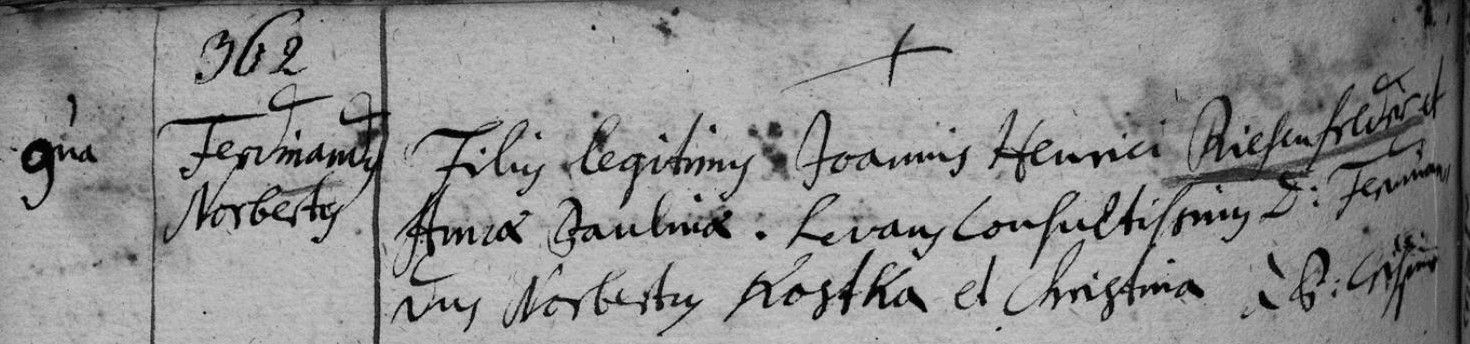 362
9na
Ferdinandus
Norbertus
Filius legitimus Joannis Henrici Riesenfelder et
Annæ Paulinæ. Levans Consultissimus D: Ferdinan
dus Norbertus Kostka et Christina à S: